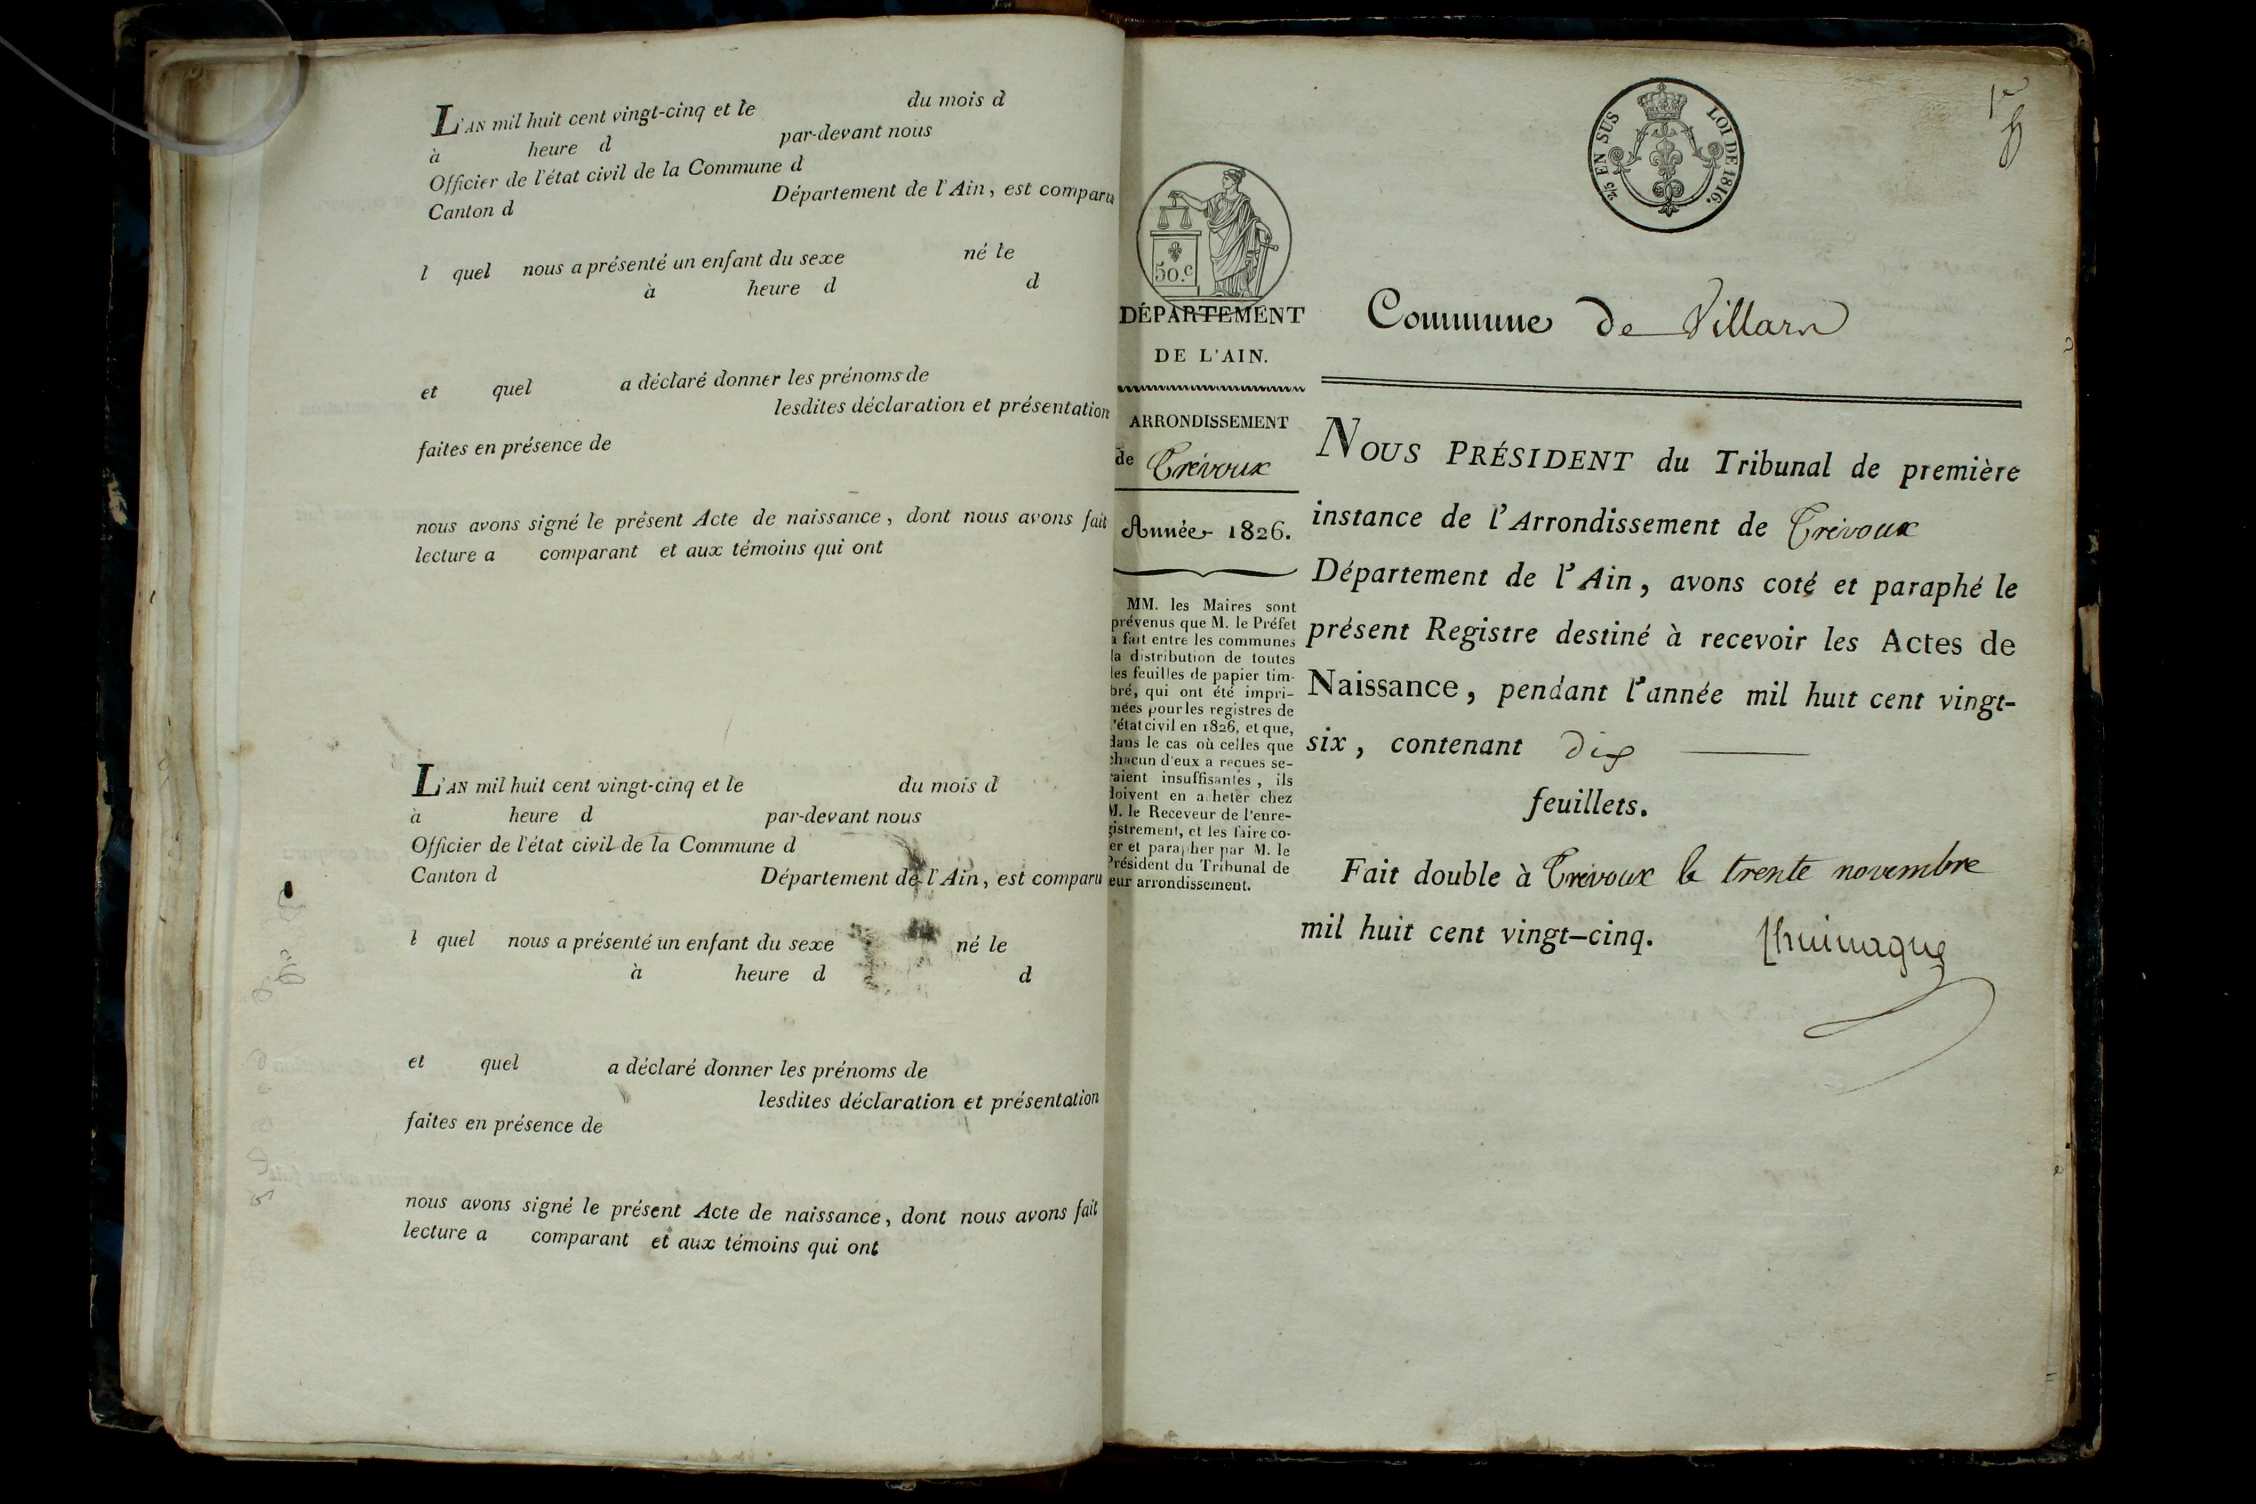 L'AN mil huit cent vingt-cinq et le du mois d
à heure d par-devant nous
Officier de l'état civil de la Commune d
Canton d Département de l'Ain, est comparu
l quel nous a présenté un enfant du sexe né le
à heure d d
et quel a déclaré donner les prénoms de
lesdites déclaration et présentation
faites en présence de
nous avons signé le présent Acte de naissance, dont nous avons fait
lecture a comparant et aux témoins qui ont
L'AN mil huit cent vingt-cinq et le du mois d
à heure d par-devant nous
Officier de l'état civil de la Commune d
Canton d Département de l'Ain, est comparu
l quel nous a présenté un enfant du sexe né le
à heure d d
et quel a déclaré donner les prénoms de
lesdites déclaration et présentation
faites en présence de
nous avons signé le présent Acte de naissance, dont nous avons fait
lecture a comparant et aux témoins qui ont
50.c
DÉPARTEMENT
DE L'AIN.
ARRONDISSEMENT
de Trévoux
Année 1826.
MM. les Maires sont
prévenus que M. le Préfet
a fait entre les communes
la distribution de toutes
les feuilles de papier tim-
bré, qui ont été impri-
mées pour les registres de
l'état civil en 1826, et que,
dans le cas où celles que
chacun d'eux a reçues se-
raient insuffisantes, ils
doivent en acheter chez
M. le Receveur de l'enre-
gistrement, et les faire co-
ter et parapher par M. le
Président du Tribunal de
leur arrondissement.
25 EN SUS LOI DE 1816.
1er
Commune de Villars
NOUS PRÉSIDENT du Tribunal de première
instance de l'Arrondissement de Trévoux
Département de l'Ain, avons coté et paraphé le
présent Registre destiné à recevoir les Actes de
Naissance, pendant l'année mil huit cent vingt-
six, contenant dix
feuillets.
Fait double à Trévoux le trente novembre
mil huit cent vingt-cinq.